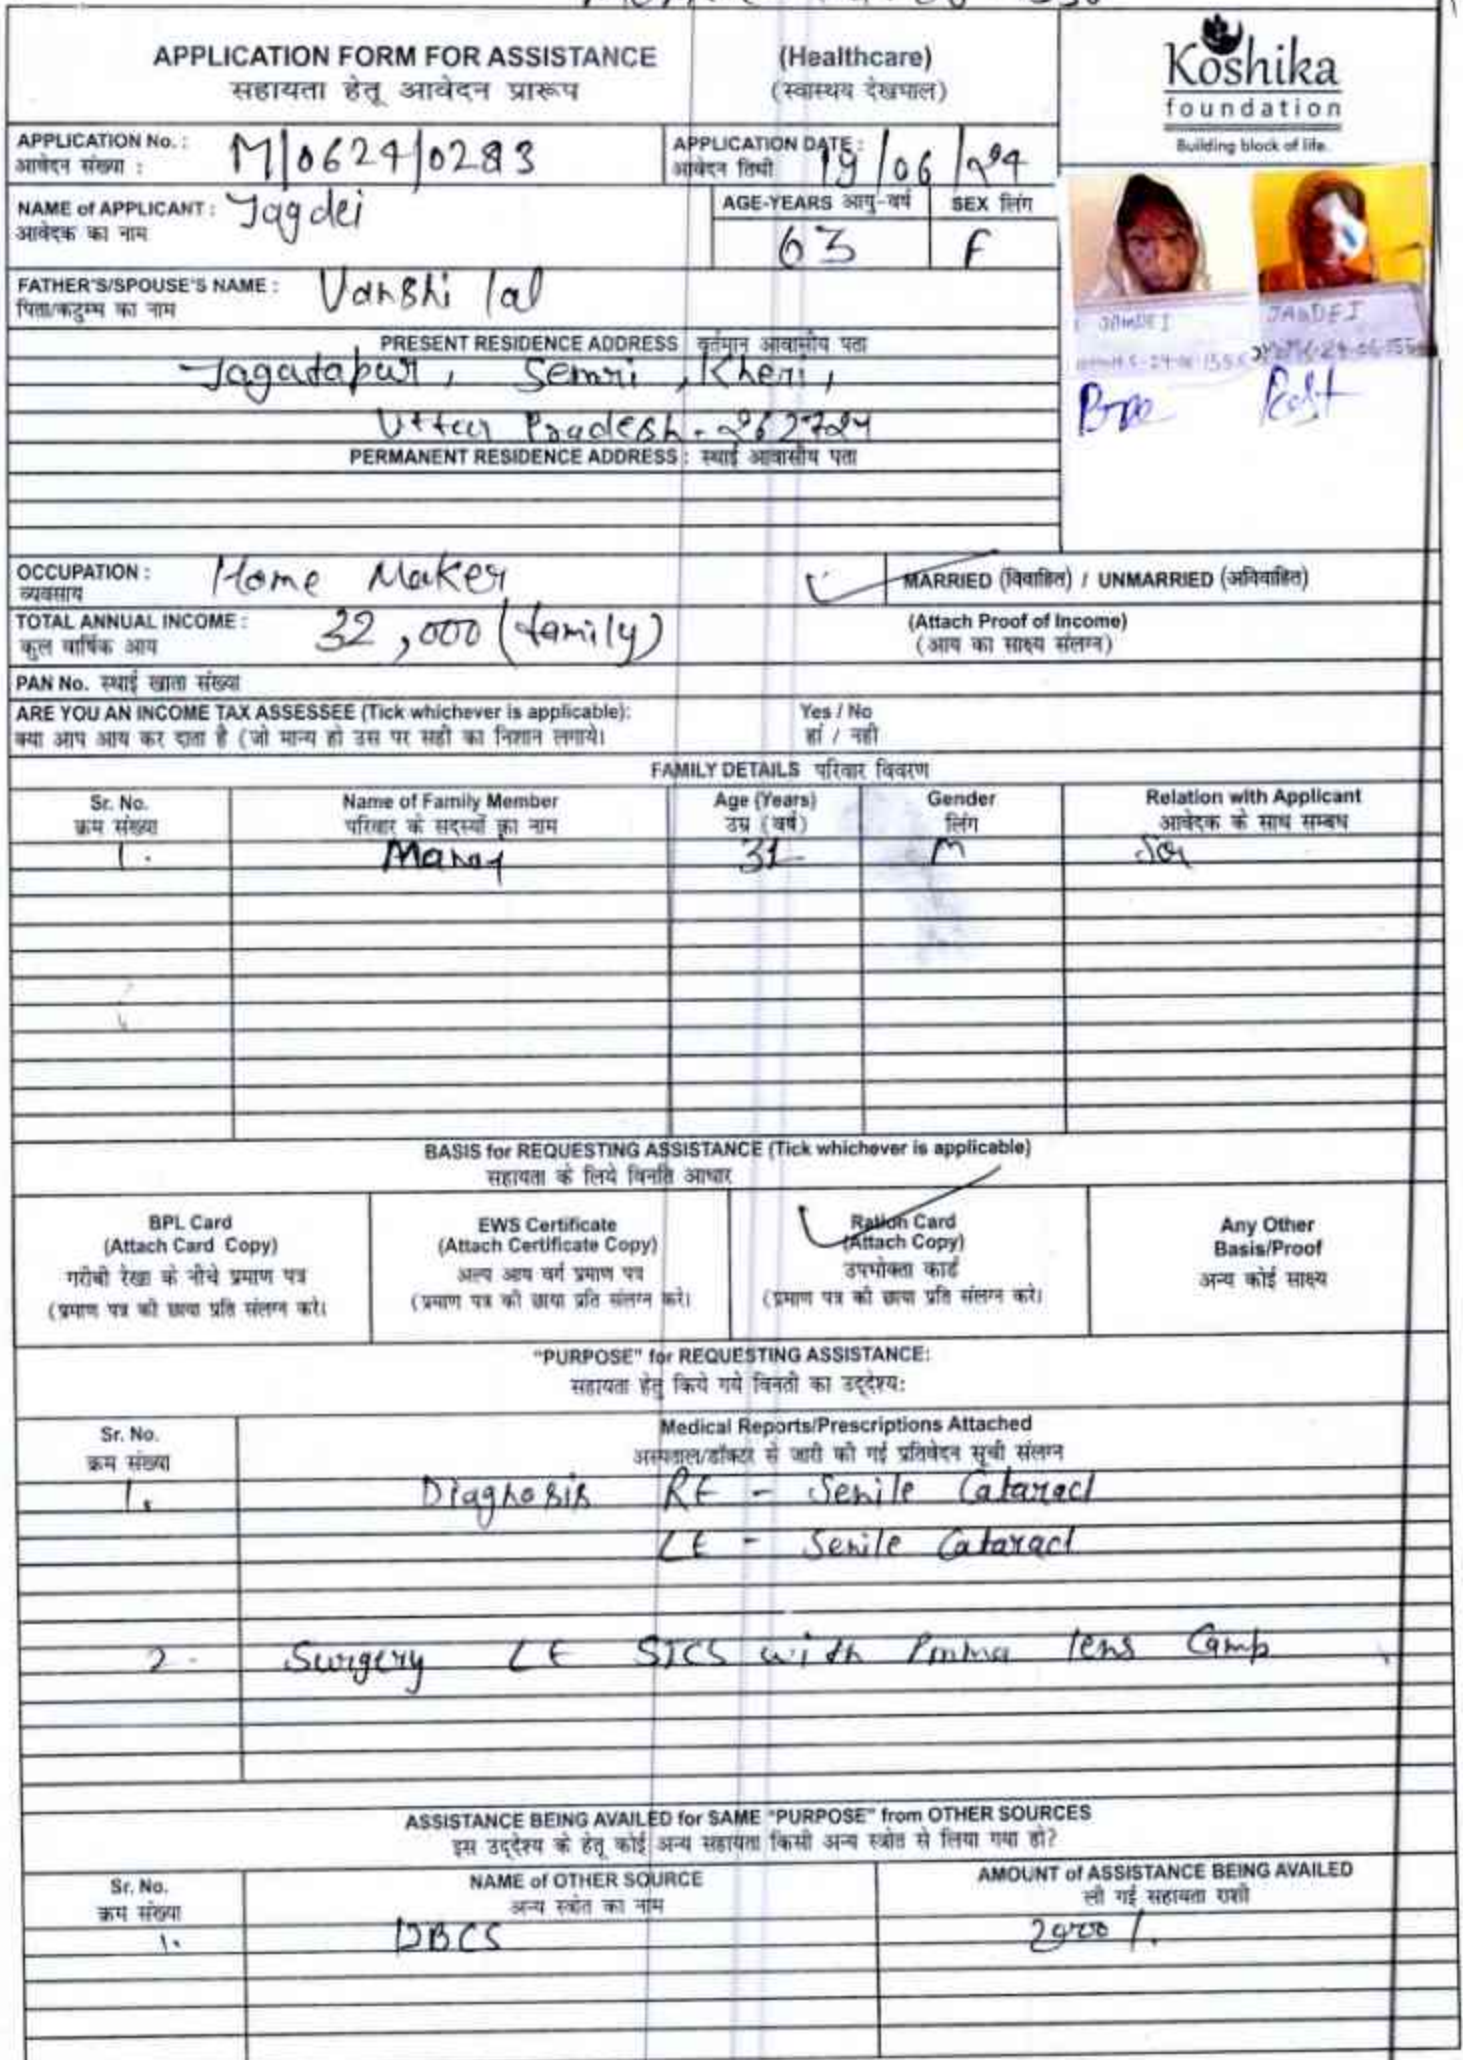 APPLICATION FORM FOR ASSISTANCE (Healthcare)
सहायता हेतू आवेदन प्रारूप (स्वास्थय देखभाल)
Koshika
foundation
Building block of life.
APPLICATION No. : M/0624/0283
आवेदन संख्या :
APPLICATION DATE : 19/06/24
आवेदन तिथी
NAME of APPLICANT : Jagdei
आवेदक का नाम
AGE-YEARS आयु-वर्ष SEX लिंग
63 F
FATHER'S/SPOUSE'S NAME : Vanshi lal
पिता/कटुम्ब का नाम
JAGDEI
PRESENT RESIDENCE ADDRESS वर्तमान आवासीय पता
Jagatapur, Semri, Kheri,
Uttar Pradesh - 262724
PERMANENT RESIDENCE ADDRESS : स्थाई आवासीय पता
OCCUPATION : Home Maker
व्यवसाय
MARRIED (विवाहित) / UNMARRIED (अविवाहित)
TOTAL ANNUAL INCOME : 32,000 (family)
कुल वार्षिक आय
(Attach Proof of Income)
(आय का साक्ष्य संलग्न)
PAN No. स्थाई खाता संख्या
ARE YOU AN INCOME TAX ASSESSEE (Tick whichever is applicable): Yes / No
क्या आप आय कर दाता है (जो मान्य हो उस पर सही का निशान लगाये। हां / नही
FAMILY DETAILS परिवार विवरण
Sr. No. Name of Family Member Age (Years) Gender Relation with Applicant
क्रम संख्या परिवार के सदस्यों का नाम उम्र (वर्ष) लिंग आवेदक के साथ सम्बध
1. Manoj 31 M Son
BASIS for REQUESTING ASSISTANCE (Tick whichever is applicable)
सहायता के लिये विनति आधार
BPL Card
(Attach Card Copy)
गरीबी रेखा के नीचे प्रमाण पत्र
(प्रमाण पत्र की छाया प्रति संलग्न करे।
EWS Certificate
(Attach Certificate Copy)
अल्प आय वर्ग प्रमाण पत्र
(प्रमाण पत्र की छाया प्रति संलग्न करे।
Ration Card
(Attach Copy)
उपभोक्ता कार्ड
(प्रमाण पत्र की छाया प्रति संलग्न करे।
Any Other
Basis/Proof
अन्य कोई साक्ष्य
"PURPOSE" for REQUESTING ASSISTANCE:
सहायता हेतु किये गये विनती का उद्देश्य:
Sr. No. Medical Reports/Prescriptions Attached
क्रम संख्या अस्पताल/डॉक्टर से जारी की गई प्रतिवेदन सूची संलग्न
1. Diagnosis RE - Senile Cataract
LE - Senile Cataract
2. Surgery LE SICS with Pmma lens Camp
ASSISTANCE BEING AVAILED for SAME "PURPOSE" from OTHER SOURCES
इस उद्देश्य के हेतू कोई अन्य सहायता किसी अन्य स्त्रोत से लिया गया हो?
Sr. No. NAME of OTHER SOURCE AMOUNT of ASSISTANCE BEING AVAILED
क्रम संख्या अन्य स्त्रोत का नाम ली गई सहायता राशी
1. DBCS 2000/.